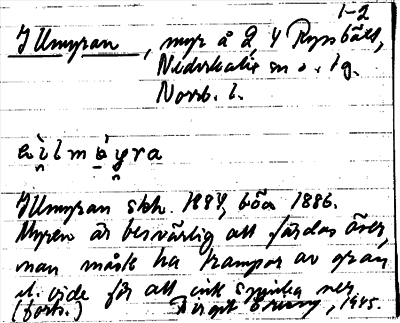 1-2
Illmyran, myr å 2, 4 Ryssbält,
Nederkalix sn o. tg.
Norrb. l.
ìlmỳra
Illmyran skh. 1884, böa 1886.
Myren är besvärlig att färdas över,
man måste ha trampor av gran
el. vide för att ick sjunka ner
(forts.) Birgit 1945.